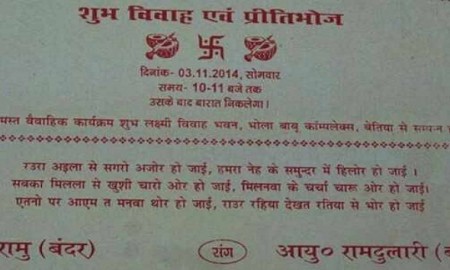 शुभ विवाह एवं प्रीतिभोज
दिनांक- 03.11.2014, सोमवार
समय- 10-11 बजे तक
उसके बाद बारात निकलेगा।
वैवाहिक कार्यक्रम शुभ लक्ष्मी विवाह भवन, भोला बाबू काम्पलेक्स, बेतिया से
रउरा अइला से सगरो अजोर हो जाई, हमरा नेह के समुन्दर में हिलोर हो जाई ।
सबका मिलला से खुशी चारो ओर हो जाई, मिलनवा के चर्चा चारू ओर हो जाई।
एतनो पर आएम त मनवा थोर हो जाई, राउर रहिया देखत रतिया से भोर हो जाई
रामु (बंदर) संग आयु० रामदुलारी